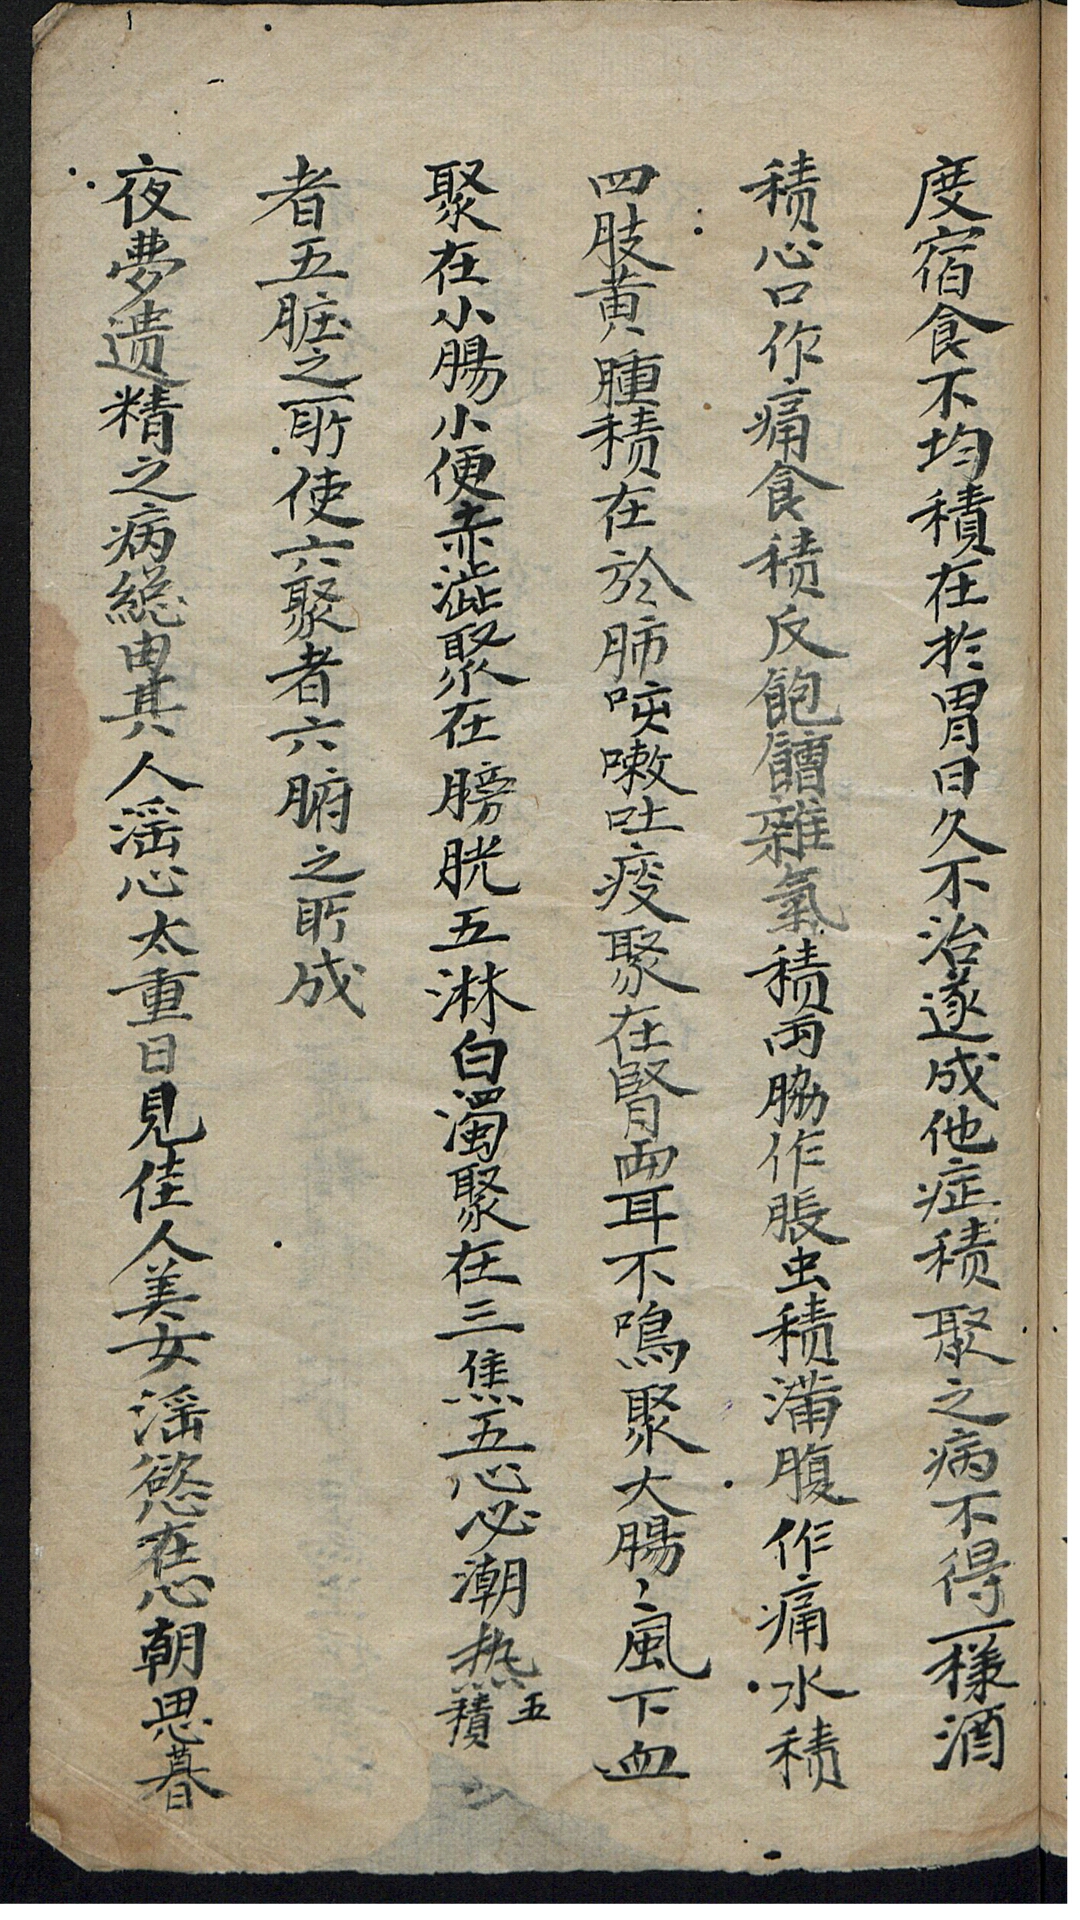 度宿食不均積在於胃日久不治遂成他症積聚之病不得一樣酒
積心口作痛食積反飽饐雜氣積両脇作脹虫積滿腹作痛水積
四肢黄腫積在於肺咳嗽吐痰聚在腎両耳不鳴聚大腸〻風下血
聚在小腸小便赤澁聚在膀胱五淋白濁聚在三焦五心必潮热五積
者五脏之所使六聚者六腑之所成
夜夢遗精之病總由其人淫心太重日見佳人美女淫慾在心朝思暮